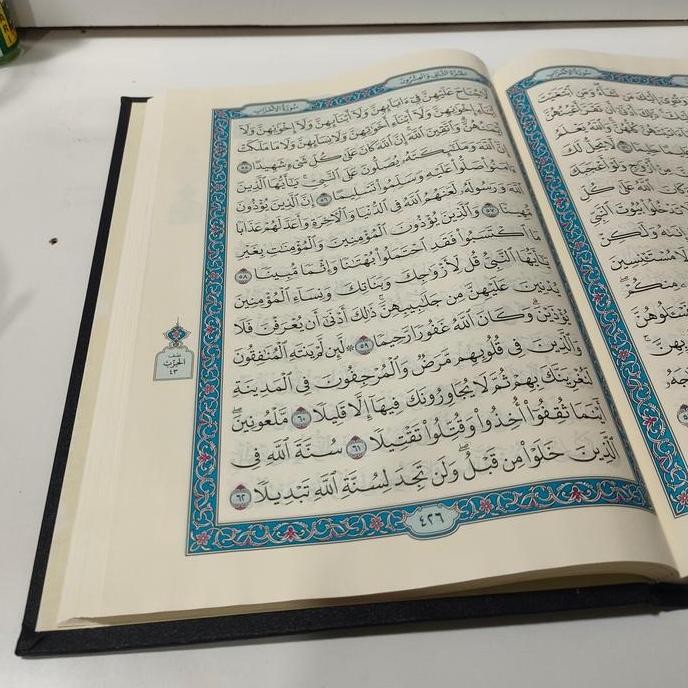 سُورَةُ الأَحْزَابِ
مَن تَشَآءُ وَمَنِ ٱبْتَغَيْتَ
أَن تَقَرَّ أَعْيُنُهُنَّ
كُلُّهُنَّ وَٱللَّهُ يَعْلَمُ
حَلِيمًا ٥١ لَّا يَحِلُّ لَكَ
مِنْ أَزْوَٰجٍ وَلَوْ أَعْجَبَكَ
ٱللَّهُ عَلَىٰ كُلِّ
تَدْخُلُوا۟ بُيُوتَ ٱلنَّبِىِّ
إِنَىٰهُ وَلَٰكِنْ
مُسْتَـْٔنِسِينَ
الجُزْءُ الثَّانِي وَالعِشْرُونَ
سُورَةُ الأَحْزَابِ
لَّا جُنَاحَ عَلَيْهِنَّ فِىٓ ءَابَآئِهِنَّ وَلَآ أَبْنَآئِهِنَّ وَلَآ إِخْوَٰنِهِنَّ وَلَآ
أَبْنَآءِ إِخْوَٰنِهِنَّ وَلَآ أَبْنَآءِ أَخَوَٰتِهِنَّ وَلَا نِسَآئِهِنَّ وَلَا مَا مَلَكَتْ
أَيْمَٰنُهُنَّ وَٱتَّقِينَ ٱللَّهَ إِنَّ ٱللَّهَ كَانَ عَلَىٰ كُلِّ شَىْءٍ شَهِيدًا ٥٥
إِنَّ ٱللَّهَ وَمَلَٰٓئِكَتَهُۥ يُصَلُّونَ عَلَى ٱلنَّبِىِّ يَٰٓأَيُّهَا ٱلَّذِينَ
ءَامَنُوا۟ صَلُّوا۟ عَلَيْهِ وَسَلِّمُوا۟ تَسْلِيمًا ٥٦ إِنَّ ٱلَّذِينَ يُؤْذُونَ
ٱللَّهَ وَرَسُولَهُۥ لَعَنَهُمُ ٱللَّهُ فِى ٱلدُّنْيَا وَٱلْءَاخِرَةِ وَأَعَدَّ لَهُمْ عَذَابًا
مُّهِينًا ٥٧ وَٱلَّذِينَ يُؤْذُونَ ٱلْمُؤْمِنِينَ وَٱلْمُؤْمِنَٰتِ بِغَيْرِ
مَا ٱكْتَسَبُوا۟ فَقَدِ ٱحْتَمَلُوا۟ بُهْتَٰنًا وَإِثْمًا مُّبِينًا ٥٨
يَٰٓأَيُّهَا ٱلنَّبِىُّ قُل لِّأَزْوَٰجِكَ وَبَنَاتِكَ وَنِسَآءِ ٱلْمُؤْمِنِينَ
يُدْنِينَ عَلَيْهِنَّ مِن جَلَٰبِيبِهِنَّ ذَٰلِكَ أَدْنَىٰٓ أَن يُعْرَفْنَ فَلَا
يُؤْذَيْنَ وَكَانَ ٱللَّهُ غَفُورًا رَّحِيمًا ٥٩ ۞ لَّئِن لَّمْ يَنتَهِ ٱلْمُنَٰفِقُونَ
وَٱلَّذِينَ فِى قُلُوبِهِم مَّرَضٌ وَٱلْمُرْجِفُونَ فِى ٱلْمَدِينَةِ
لَنُغْرِيَنَّكَ بِهِمْ ثُمَّ لَا يُجَاوِرُونَكَ فِيهَآ إِلَّا قَلِيلًا ٦٠ مَّلْعُونِينَ
أَيْنَمَا ثُقِفُوٓا۟ أُخِذُوا۟ وَقُتِّلُوا۟ تَقْتِيلًا ٦١ سُنَّةَ ٱللَّهِ فِى
ٱلَّذِينَ خَلَوْا۟ مِن قَبْلُ وَلَن تَجِدَ لِسُنَّةِ ٱللَّهِ تَبْدِيلًا ٦٢
نصف
الحزب
٤٣
٤٢٦